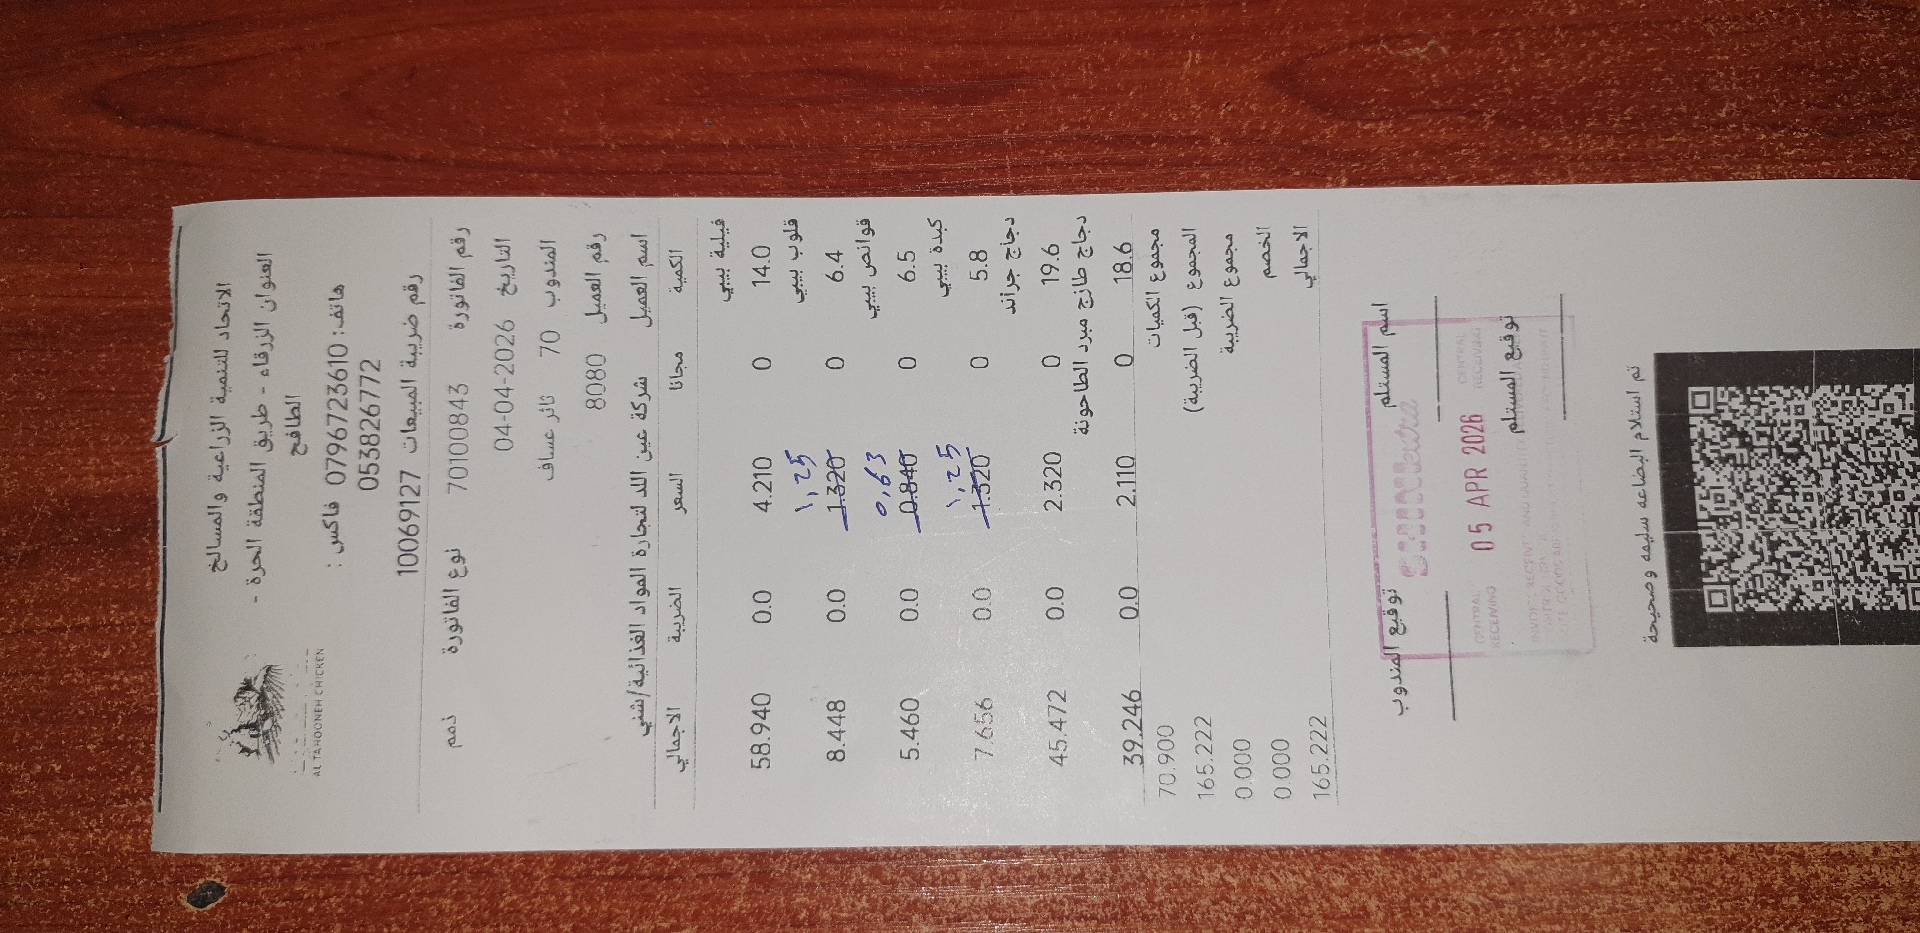 AL TAHOONEH CHICKEN
الاتحاد للتنمية الزراعية والمسالخ
العنوان الزرقاء - طريق المنطقة الحرة -
الطافح
هاتف: 0796723610 فاكس :
053826772
رقم ضريبة المبيعات 10069127
رقم الفاتورة 70100843 نوع الفاتورة ذمم
التاريخ 04-04-2026
المندوب 70 ثائر عساف
رقم العميل 8080
اسم العميل شركة عين اللد لتجارة المواد الغذائية/شني
الكمية مجانا السعر الضريبة الاجمالي
فيلية بيبي
14.0 0 4.210 0.0 58.940
قلوب بيبي
1,25
6.4 0 1.320 0.0 8.448
قوانص بيبي
0,63
6.5 0 0.840 0.0 5.460
كبدة بيبي
1,25
5.8 0 1.320 0.0 7.656
دجاج جراند
19.6 0 2.320 0.0 45.472
دجاج طازج مبرد الطاحونة
18.6 0 2.110 0.0 39.246
مجموع الكميات 70.900
المجموع (قبل الضريبة) 165.222
مجموع الضريبة 0.000
الخصم 0.000
الاجمالي 165.222
اسم المستلم توقيع المندوب
CENTRAL RECEIVING 05 APR 2026 CENTRAL RECEIVING
توقيع المستلم
تم استلام البضاعه سليمه وصحيحة